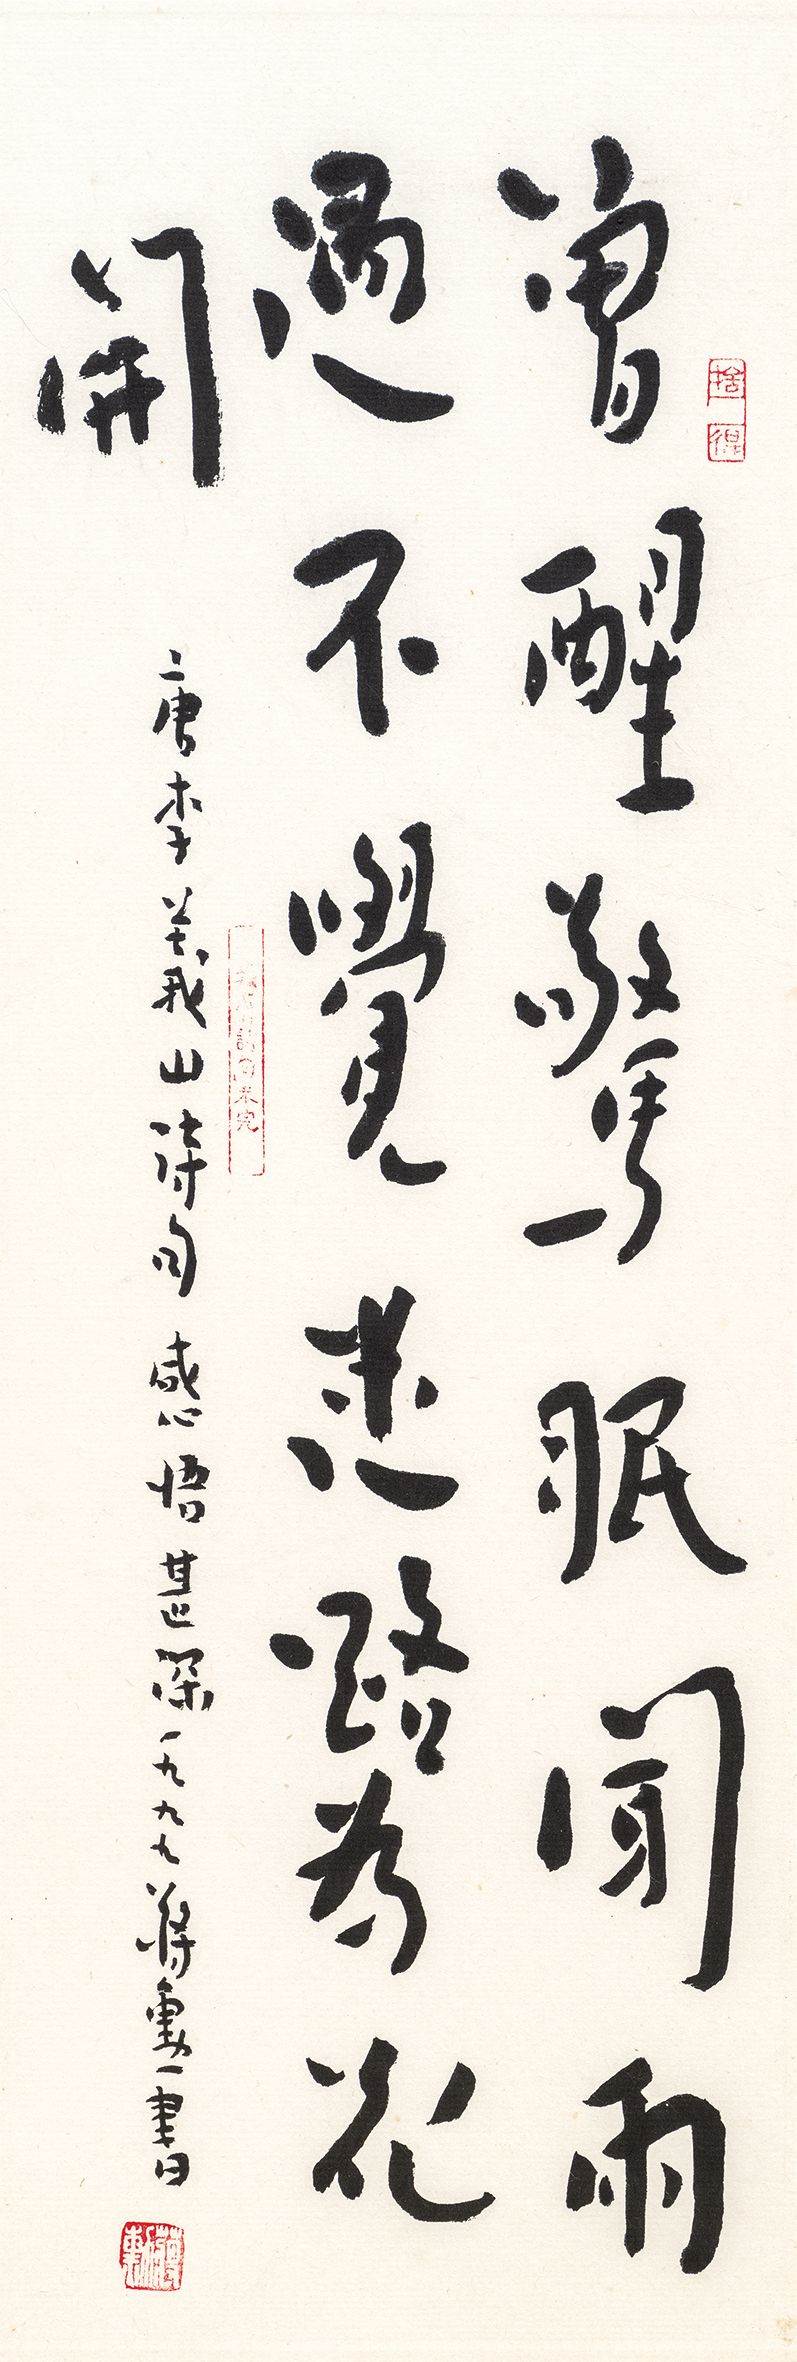 曾醒驚眠聞雨
過不覺迷路為花
開
唐李義山詩句感悟甚深一九九九蔣勳書
捨得
蔣勳